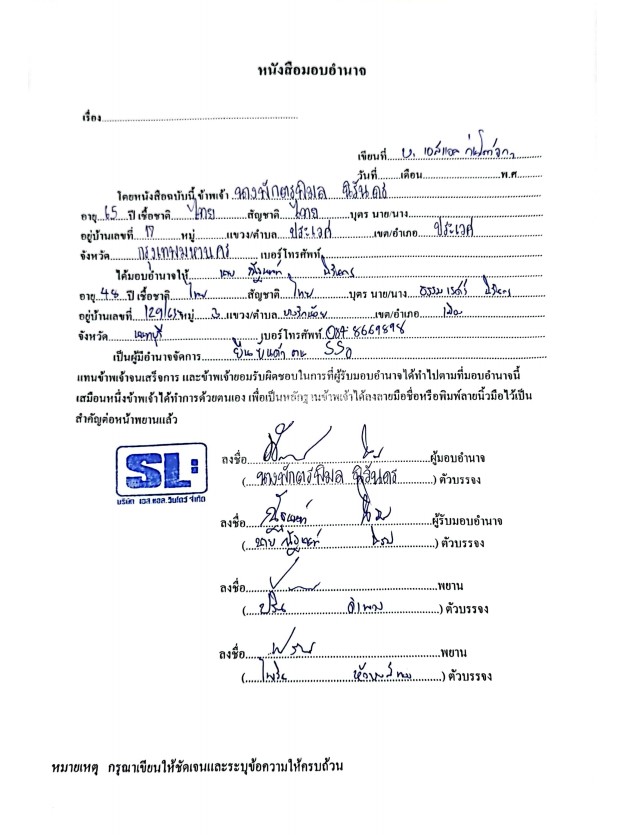 หนังสือมอบอำนาจ
เรื่อง
เขียนที่ บ. เอสแอล
วันที่ เดือน พ.ศ.
โดยหนังสือฉบับนี้ ข้าพเจ้า นางพักตร์พิมล นิรันดร
อายุ 65 ปี เชื้อชาติ ไทย สัญชาติ ไทย บุตร นาย/นาง
อยู่บ้านเลขที่ 17 หมู่ แขวง/ตำบล ประเวศ เขต/อำเภอ ประเวศ
จังหวัด กรุงเทพมหานคร เบอร์โทรศัพท์
ได้มอบอำนาจให้ นาย
อายุ 48 ปี เชื้อชาติ ไทย สัญชาติ ไทย บุตร นาย/นาง
อยู่บ้านเลขที่ หมู่ 3 แขวง/ตำบล บางรักน้อย เขต/อำเภอ เมือง
จังหวัด นนทบุรี เบอร์โทรศัพท์ 084 8669898
เป็นผู้มีอำนาจจัดการ SSO
แทนข้าพเจ้าจนเสร็จการ และข้าพเจ้ายอมรับผิดชอบในการที่ผู้รับมอบอำนาจได้ทำไปตามที่มอบอำนาจนี้
เสมือนหนึ่งข้าพเจ้าได้ทำการด้วยตนเอง เพื่อเป็นหลักฐานข้าพเจ้าได้ลงลายมือชื่อหรือพิมพ์ลายนิ้วมือไว้เป็น
สำคัญต่อหน้าพยานแล้ว
SL:
บริษัท เอส.แอล.วินโดว์ จำกัด
ลงชื่อ ผู้มอบอำนาจ
( นางพักตร์พิมล นิรันดร ) ตัวบรรจง
ลงชื่อ ผู้รับมอบอำนาจ
( นาย ) ตัวบรรจง
ลงชื่อ พยาน
( ) ตัวบรรจง
ลงชื่อ พยาน
( ) ตัวบรรจง
หมายเหตุ กรุณาเขียนให้ชัดเจนและระบุข้อความให้ครบถ้วน